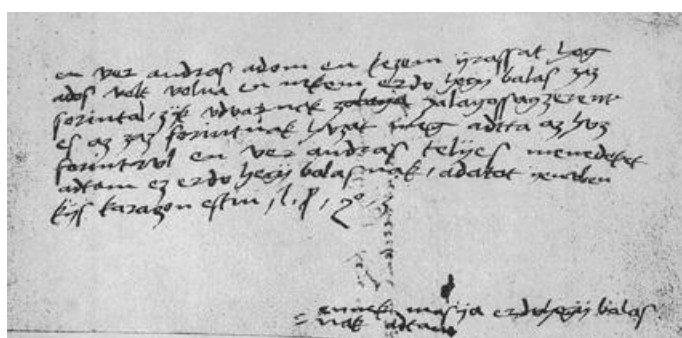 en ver andras adom en kezem ijrassat hog
ados volt volna en nekem erdo hegij balas zaz
forintal, zijk vdvarnek zalagossag zerent
es az zaz forintnak hvzat meg adtta az hvz
forintrvl en ver andras telijes menedeket
adtam ez erdo hegij balasnak, adatot
kijs karazon estin
ennek masija erdohegij balas
nak adtam